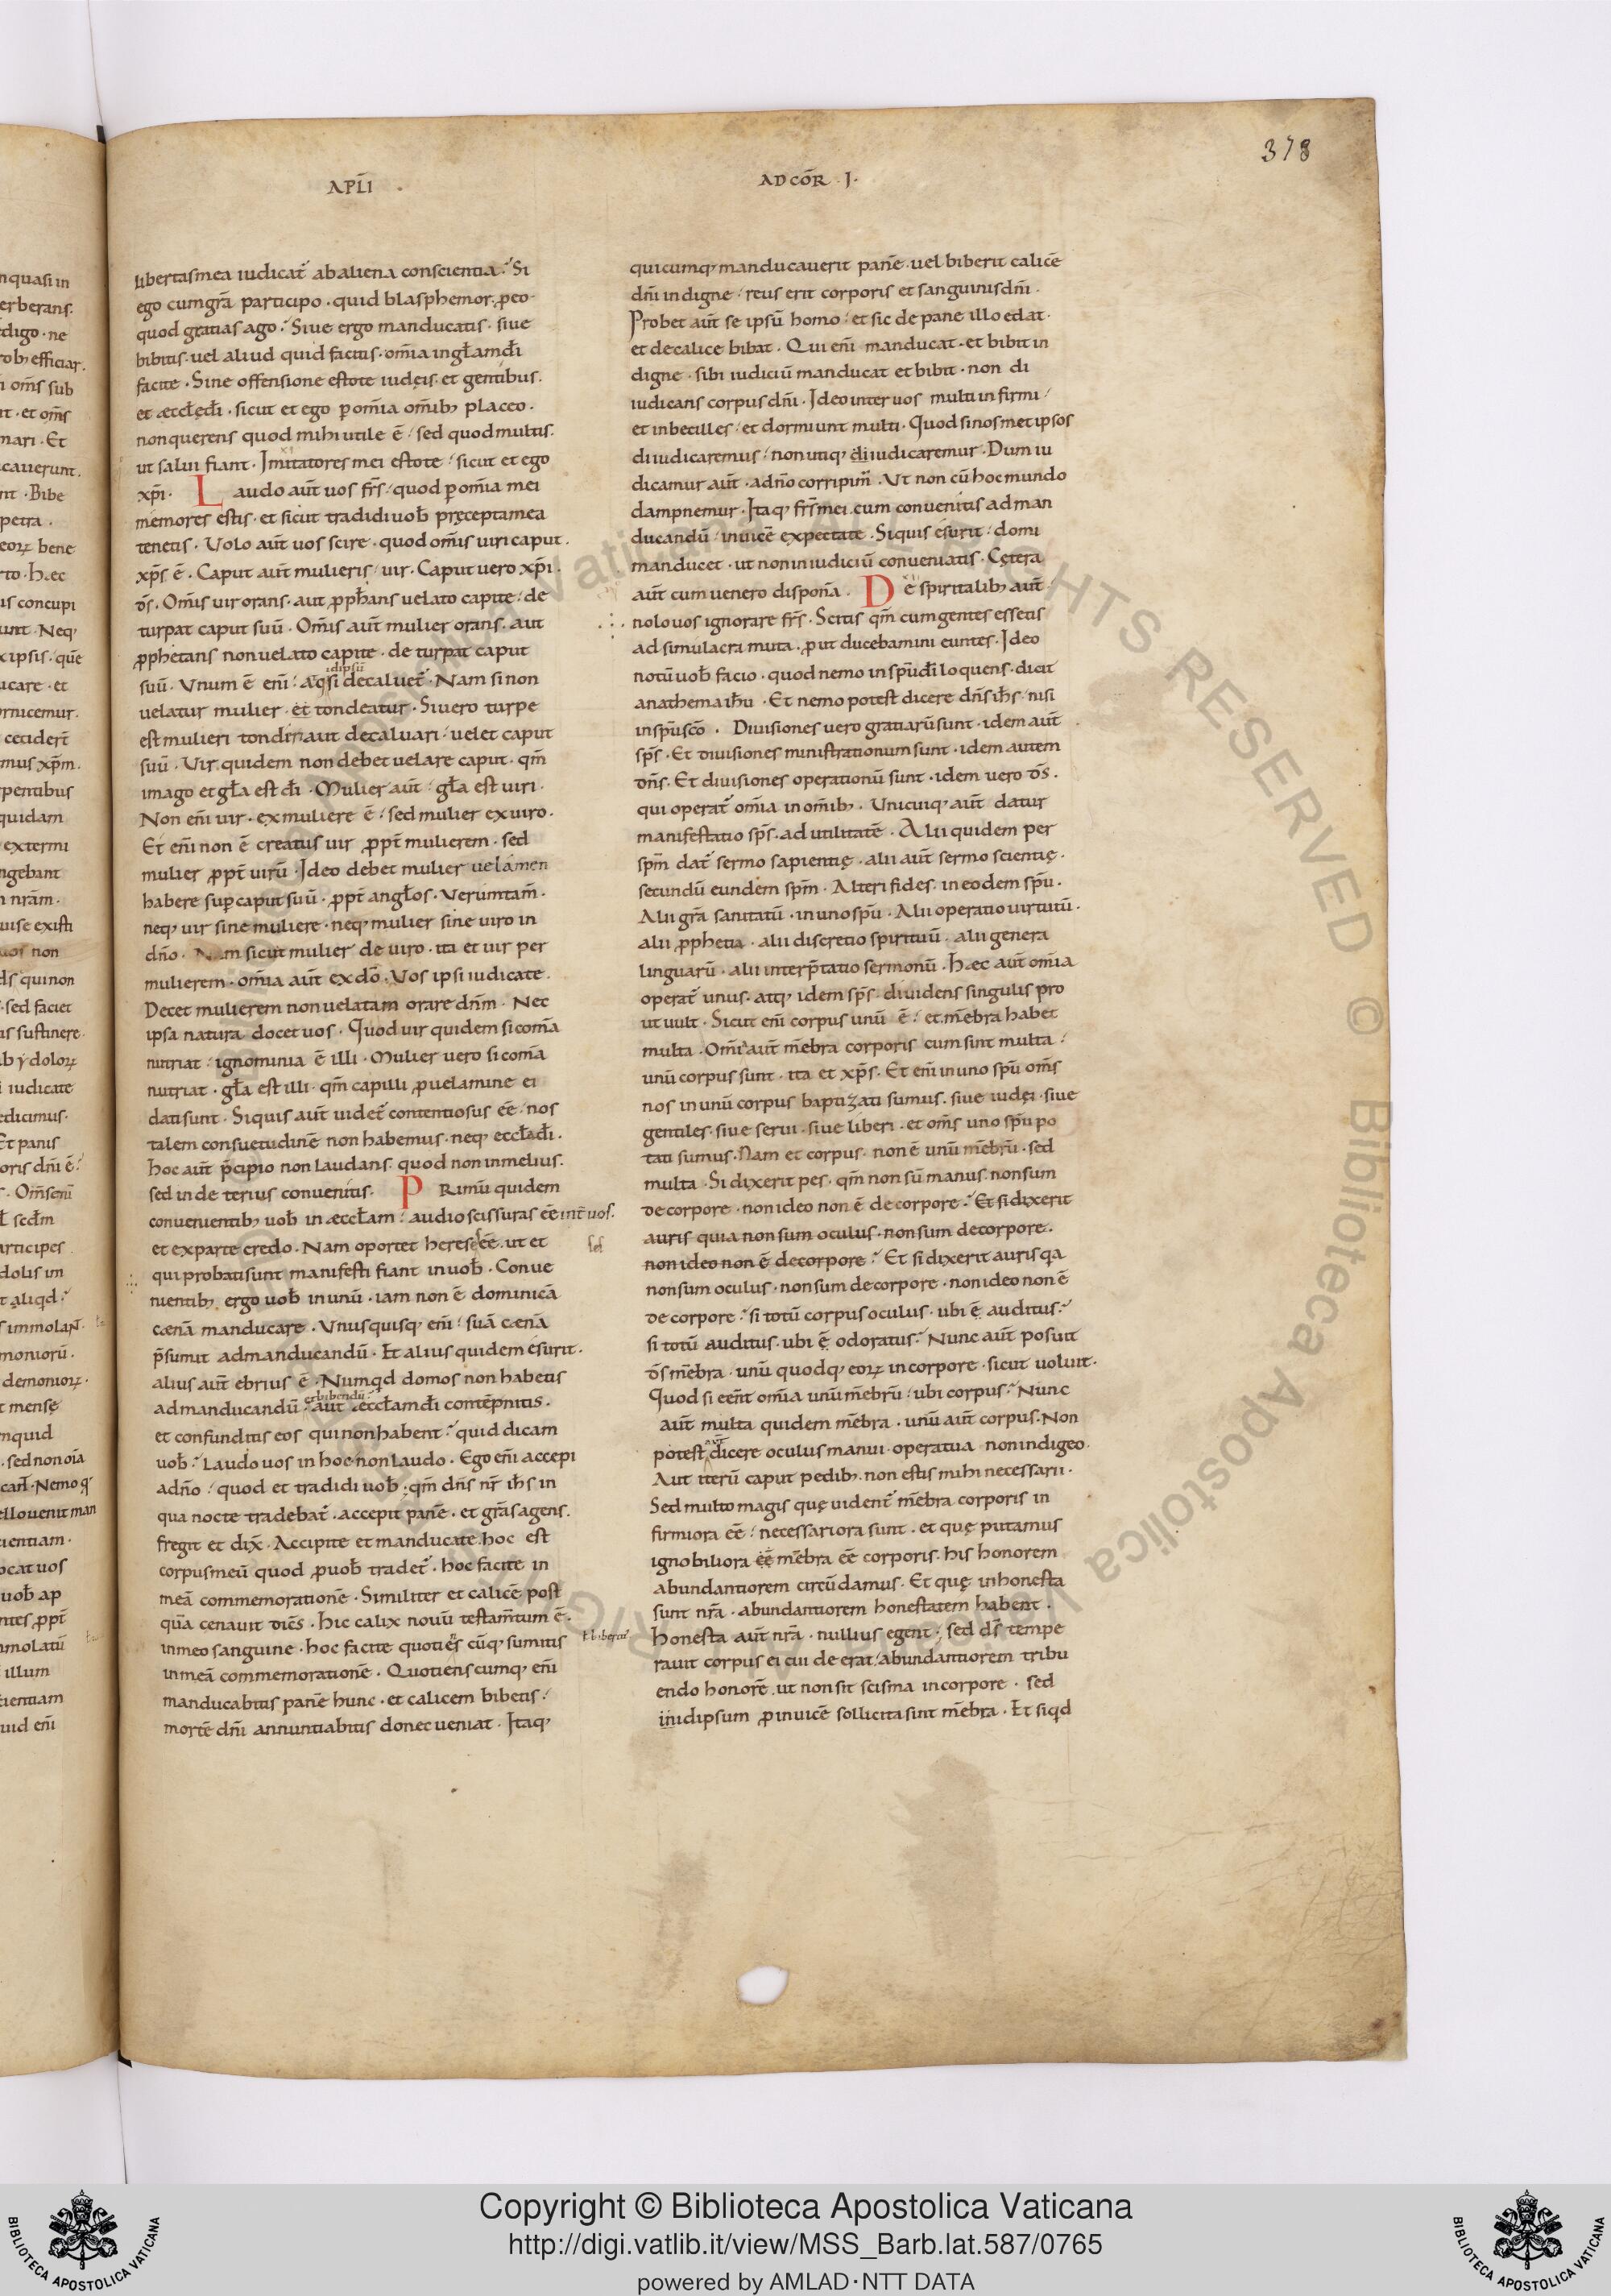 378
APL̄I
AD COR̄ · I ·
libertas mea iudicat̄ ab aliena conscientia? Si
ego cum gr̄a participo · quid blasphemor p eo
quod gratias ago? Siue ergo manducatis · siue
bibitis · uel aliud quid facitis · om̄ia in gl̄am dī
facite · Sine offensione estote iudęis · et gentibus ·
et æccl̄ę dī · sicut et ego p om̄ia om̄ib; placeo ·
non querens quod mihi utile ē · sed quod multis ·
ut salui fiant · Imitatores mei estote · sicut et ego
xp̄i · Laudo aūt uos fr̄s · quod p om̄ia mei
memores estis · et sicut tradidi uob̄ pręcepta mea
tenetis · Volo aūt uos scire · quod om̄is uiri caput ·
xp̄s ē · Caput aūt mulieris · uir · Caput uero xp̄i ·
d̄s · Om̄is uir orans · aut pph̄ans uelato capite · de
turpat caput suū · Om̄is aūt mulier orans · aut
pphetans non uelato capite · de turpat caput
suū · Vnum ē eni̅ · acsi decaluet̄ · Nam si non
uelatur mulier · et tondeatur · Si uero turpe
est mulieri tonderi aut decaluari · uelet caput
suū · Vir quidem non debet uelare caput · qm̄
imago et gl̄a est dī · Mulier aūt · gl̄a est uiri ·
Non eni̅ uir · ex muliere ē · sed mulier ex uiro ·
Et eni̅ non ē creatus uir ppt̄ mulierem · sed
mulier ppt̄ uirū · Ideo debet mulier uelamen
habere sup caput suū · ppt̄ angl̄os · Verumtam̄ ·
neq; uir sine muliere · neq; mulier sine uiro in
dn̄o · Nam sicut mulier de uiro · ita et uir per
mulierem · om̄ia aūt ex dō · Vos ipsi iudicate ·
Decet mulierem non uelatam orare dn̄m · Nec
ipsa natura docet uos · Quod uir quidem si comā
nutriat · ignominia ē illi · Mulier uero si comā
nutriat · gl̄a est illi · qm̄ capilli p uelamine ei
dati sunt · Si quis aūt uidet̄ contentiosus eē · nos
talem consuetudinē non habemus · neq; eccl̄a dī ·
hoc aūt p̄cipio non laudans · quod non in melius ·
sed in deterius conuenitis · Primū quidem
conuenientib; uob̄ in æccl̄am · audio scissuras eē int̄ uos ·
et ex parte credo · Nam oportet hereses eē · ut et
qui probati sunt manifesti fiant in uob̄ · Conue
nientib; ergo uob̄ in unū · iam non ē dominicā
cænā manducare · Vnusquisq; eni̅ · suā cænā
p̄sumit ad manducandū · Et alius quidem esurit ·
alius aūt ebrius ē · Numqd domos non habetis
ad manducandū et bibendū? aut æccl̄am dī contēpnitis ·
et confunditis eos qui non habent? quid dicam
uob̄? Laudo uos in hoc non laudo · Ego eni̅ accepi
a dn̄o · quod et tradidi uob̄ · qm̄ dn̄s nr̄ ih̄s in
qua nocte tradebat̄ · accepit panē · et gr̄as agens ·
fregit et dix̄ · Accipite et manducate · hoc est
corpus meū quod p uob̄ tradet̄ · hoc facite in
meā commemorationē · Similiter et calicē post
quā cenauit dicēs · Hic calix nouū testam̄tum ē ·
in meo sanguine · hoc facite quotiens cūq; sumitis
in meā commemorationē · Quotienscumq; eni̅
manducabitis panē hunc · et calicem bibetis ·
mortē dn̄i annuntiabitis donec ueniat · Itaq;
quicumq; manducauerit panē · uel biberit calicē
dn̄i indigne · reus erit corporis et sanguinis dn̄i ·
Probet aūt se ipsū homo · et sic de pane illo edat ·
et de calice bibat · Qui eni̅ manducat · et bibit in
digne · sibi iudiciū manducat et bibit · non di
iudicans corpus dn̄i · Ideo inter uos multi infirmi ·
et inbecilles · et dormiunt multi · Quod si nosmet ipsos
diiudicaremus · non utiq; diiudicaremur · Dum iu
dicamur aūt · a dn̄o corripimr̄ · Vt non cū hoc mundo
dampnemur · Itaq; fr̄s mei · cum conuenitis ad man
ducandū · inuicē expectate · Si quis esurit · domi
manducet · ut non in iudiciū conueniatis · Cętera
aūt cum uenero disponā · De spiritalib; aūt
nolo uos ignorare fr̄s · Scitis qm̄ cum gentes essetis
ad simulacra muta · put ducebamini euntes · Ideo
notū uob̄ facio · quod nemo in sp̄u dī loquens · dicit
anathema ih̄u · Et nemo potest dicere dn̄s ih̄s · nisi
in sp̄u sc̄o · Diuisiones uero gratiarū sunt · idem aūt
sp̄s · Et diuisiones ministrationum sunt · idem autem
dn̄s · Et diuisiones operationū sunt · idem uero d̄s ·
qui operat̄ om̄ia in om̄ib; · Vnicuiq; aūt datur
manifestatio sp̄s · ad utilitatē · Alii quidem per
sp̄m dat̄ sermo sapientię · alii aūt sermo scientię ·
secundū eundem sp̄m · Alteri fides · in eodem sp̄u ·
Alii gr̄a sanitatū · in uno sp̄u · Alii operatio uirtutū ·
alii pphetia · alii discretio spirituū · alii genera
linguarū · alii interp̄tatio sermonū · Hæc aūt om̄ia
operat̄ unus · atq; idem sp̄s · diuidens singulis pro
ut uult · Sicut eni̅ corpus unū ē · et m̄ebra habet
multa · Om̄ia aūt m̄ebra corporis cum sint multa ·
unū corpus sunt · ita et xp̄s · Et eni̅ in uno sp̄u om̄s
nos in unū corpus baptizati sumus · siue iudęi · siue
gentiles · siue serui · siue liberi · et om̄s uno sp̄u po
tati sumus · Nam et corpus · non ē unū m̄ebrū · sed
multa · Si dixerit pes · qm̄ non sū manus · non sum
de corpore · non ideo non ē de corpore? Et si dixerit
auris quia non sum oculus · non sum de corpore ·
non ideo non ē de corpore? Et si dixerit auris qa
non sum oculus · non sum de corpore · non ideo non ē
de corpore? si totū corpus oculus · ubi ē auditus?
si totū auditus · ubi ē odoratus? Nunc aūt posuit
d̄s m̄ebra · unū quodq; eoꝝ in corpore · sicut uoluit ·
Quod si eēnt om̄ia unū m̄ebrū · ubi corpus? Nunc
aūt multa quidem m̄ebra · unū aūt corpus · Non
potest aūt dicere oculus manui · opera tua non indigeo ·
Aut iterū caput pedib; · non estis mihi necessarii ·
Sed multo magis quę uident̄ m̄ebra corporis in
firmiora eē · necessariora sunt · et quę putamus
ignobiliora eē m̄ebra eē corporis · his honorem
abundantiorem circūdamus · Et quę inhonesta
sunt nr̄a · abundantiorem honestatem habent ·
honesta aūt nr̄a · nullius egent · sed d̄s tempe
rauit corpus ei cui deerat · abundantiorem tribu
endo honorē · ut non sit scisma in corpore · sed
in idipsum p inuicē sollicita sint m̄ebra · Et siqd
Copyright © Biblioteca Apostolica Vaticana
http://digi.vatlib.it/view/MSS_Barb.lat.587/0765
powered by AMLAD·NTT DATA
BIBLIOTECA APOSTOLICA VATICANA
BIBLIOTECA APOSTOLICA VATICANA